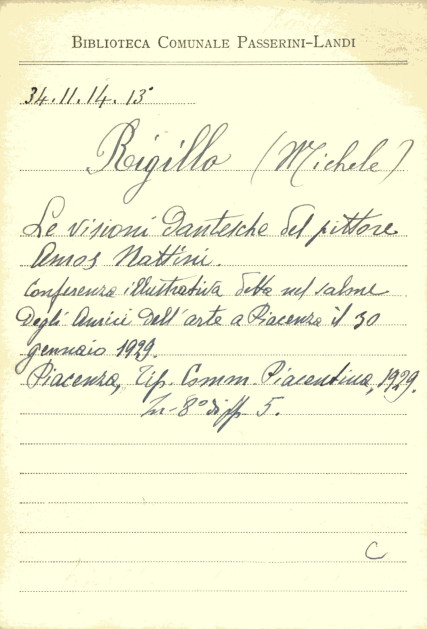 BIBLIOTECA COMUNALE PASSERINI-LANDI
34.II.14.13°
Rigillo (Michele)
Le visioni dantesche del pittore
Amos Nattini.
Conferenza illustrativa detta nel salone
degli Amici dell'arte a Piacenza il 30
gennaio 1929.
Piacenza, Tip. Comm. Piacentina, 1929.
In-8° di pp. 5.
C